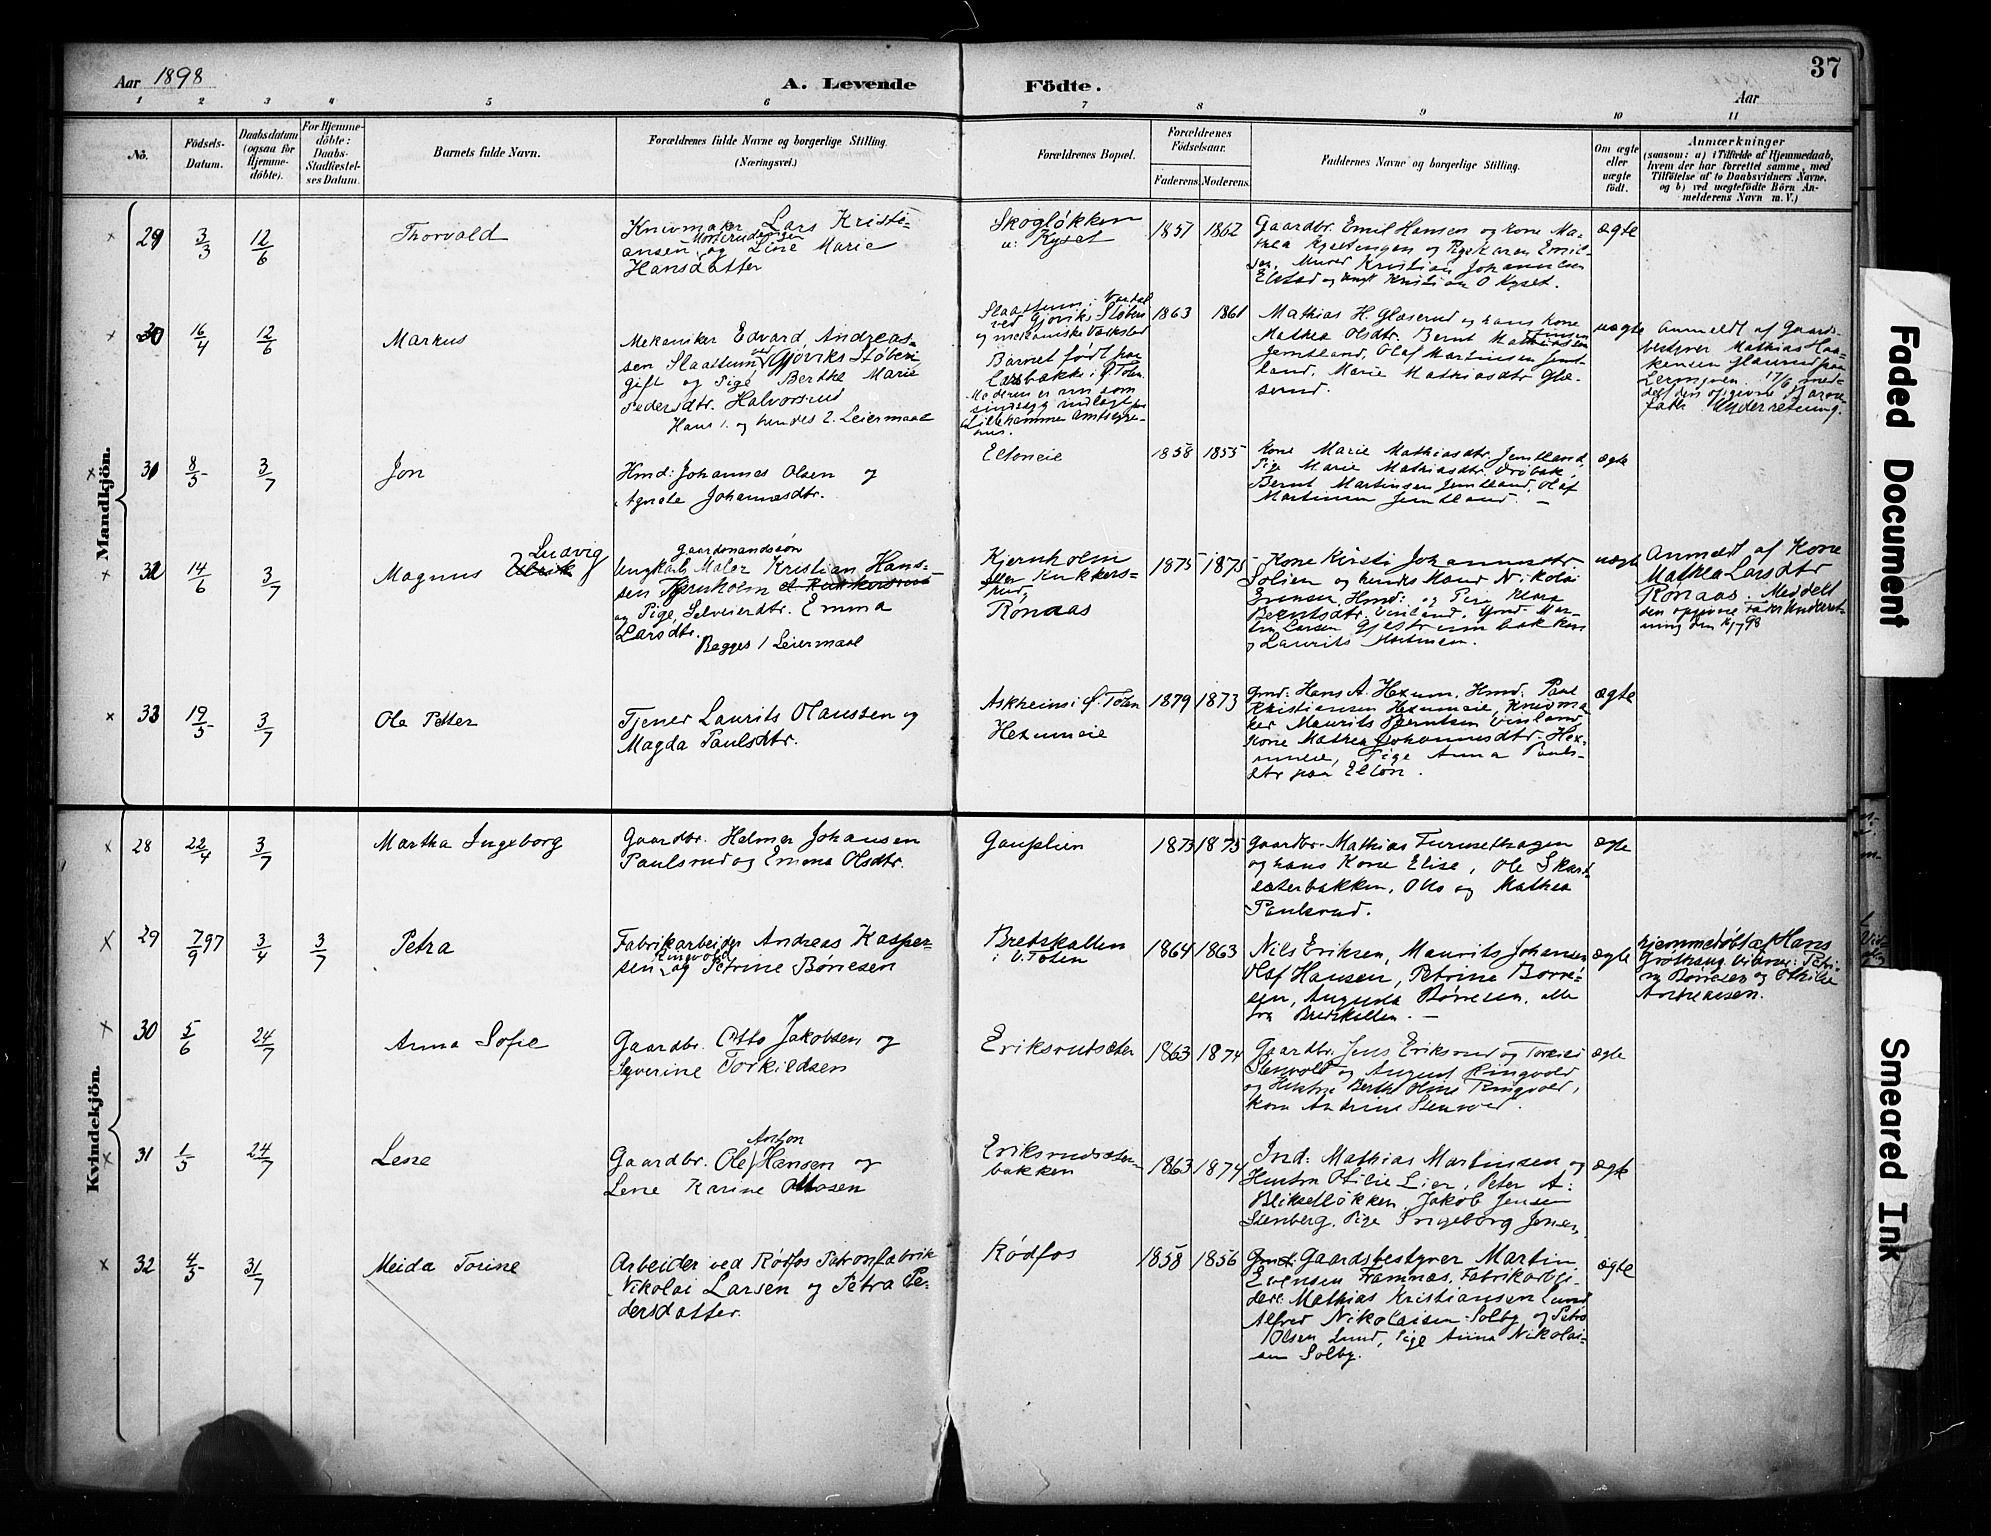 Aar 1898
A. Levende
Födte.
Aar
37
1 2 3 4 5 6 7 8 9 10 11
No.
Födsels-
Datum.
Daabsdatum
(ogsaa for
Hjemme-
döbte).
For Hjemme-
döbte:
Daabs-
Stadfæstel-
ses Datum.
Barnets fulde Navn.
Forældrenes fulde Navne og borgerlige Stilling.
(Næringsvei.)
Forældrenes Bopæl.
Forældrenes
Födselsaar.
Faderens.
Moderens.
Faddernes Navne og borgerlige Stilling.
Om ægte
eller
uægte
födt.
Anmærkninger
(saasom: a) i Tilfælde af Hjemmedaab,
hvem der har forrettet samme, med
Tilföielse af to Daabsvidners Navne,
og b) ved uægtefödte Börn An-
melderens Navn m. V.)
Mandkjön.
29 3/3 12/6
Thorvald
Knivmaker Lars Kristi-
ansen og Line Marie
Hansdatter
Skogløkken
u: Kyset
1857 1862
Gaardbr. Emil Hansen og kone Ma-
thea Kysetengen og Pige Karen Emil-
sen, Murer Kristian Johannsen
Elstad og Kristian O Kyset.
ægte
30 16/4 12/6
Markus
Mekaniker Edvard Andreas-
sen Slaattum ved Gjøviks Støberi
gift og Pige Berthe Marie
Pedersdtr. Halvorsrud
Hans 1. og hendes 2. Leiermaal
Slaattum i Vardal
ved Gjøviks Støberi
og mekaniske Værksted
Barnet født paa
Larsbakke i Ø. Toten.
Moderen er nu som
sindssyg indlagt paa
Lillehammer Amtssyge-
hus.
1863 1861
Mathias H. Glæserud og hans Kone
Mathea Olsdtr. Bernt Martinsen
Jemtland, Olaf Martinsen Jemt-
land, Marie Mathiasdtr. Glæ-
serud.
uægte
Anmeldt af Gaards-
bestyrer Mathias Haa-
kensen Glæserud paa
Lerongven. 17/6 med-
delt den opgivne Barne-
fader Underretning.
31 8/5 3/7
Jon
Hmd: Johannes Olsen og
Agnete Johannesdtr.
Eltoneie
1858 1855
Kone Marie Mathiasdtr. Jemtland,
Pige Marie Mathiasdtr.
Bernt Martinsen Jemtland, Olaf
Martinsen Jemtland. —
ægte
32 14/6 3/7
Magnus Ludvig
Gaardmandssøn
Ungkarl Maler Kristian Hans-
sen Kjernholm
og Pige, Selveierdtr. Emma
Larsdtr.
Begges 1 Leiermaal
Kjernholm
eller Kukkers-
rud,
Rønaas
1875 1875
Kone Kirsti Johannesdtr.
Solien og hendes Mand Nikolai
Evensen, Hmd: og Pige Klara
Berntsdtr. Vinland, Ymd. Mar-
tin Larsen Gjestrumbakken
og Laurits Martinsen.
uægte
Anmeldt af Kone
Mathea Larsdtr
Rønaas. Meddelt
den opgivne Fader Underret-
ning den
33 19/5 3/7
Ole Petter
Tjener Laurits Olaussen og
Magda Paulsdtr.
Askheim i Ø. Toten
Hexumeie
1879 1873
Gmd: Hans A. Hexum, Hmd: Paul
Kristiansen Hexumeie, Knivma-
ker Maurits Berntsen Vinland,
Kone Mathea Johannesdtr. Hex-
umeie, Pige Anna Pauls-
dtr paa Elton.
ægte
Kvindekjön.
28 22/4 3/7
Martha Ingeborg
Gaardbr. Helmer Johansen
Paulsrud og Emma Olsdtr.
Gauplien
1873 1875
Gaardbr. Mathias Furusethagen
og hans Kone Elise, Ole Skart-
sæterbakken, Otto og Mathea
Paulsrud.
ægte
29 7/9 97 3/4 3/7
Petra
Fabrikarbeider Andreas Kasper-
sen Ringvold og Petrine Børresen
Bredskallen
i V. Toten
1864 1863
Nils Eriksen, Maurits Johansen
Olaf Hansen, Petrine Børre-
sen, Augusta Børresen, alle
fra Bredskallen. —
ægte
Hjemmedøbt af Hans
Grøthaug. Vidner: Petri-
ne Børresen og Othilie
Andreassen.
30 5/6 24/7
Anna Sofie
Gaardbr. Otto Jakobsen og
Syverine Torkildsen
Eriksrudsæter
1863 1874
Gaardbr. Jens Eriksrud og
Stenvold og August Ringvold
og Hustru Berthe Oline Ringvold,
Kone Andrine Stensvold.
ægte
31 1/5 24/7
Lene
Gaardbr. Ole Anton Hansen og
Lene Karine Ottosen
Eriksrudsæter-
bakken
1863 1874
Ind: Mathias Martinsen og
Hustru Otilie Lier, Peter A:
Blikset løkken, Jakob Jensen
Stenberg, Pige Ingeborg Jensen
ægte
32 4/5 31/7
Meida Torine
Arbeider ved Rødfos Patronfabrik
Nikolai Larsen og Petra Pe-
dersdatter.
Rødfos
1858 1856
Gaardsbestyrer Martin
Evensen Framnæs, Fabrikarbei-
dere Mathias Kristiansen Lund
Alfred Nikolaisen Solby og Petra
Olsen Lund, Pige Anna Nikolai-
sen Solby.
ægte
Faded Document
Smeared Ink